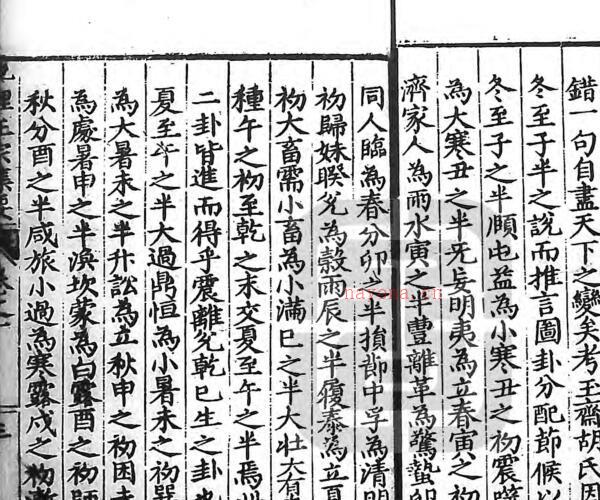 錯一句自盡天下之變矣考玉齋胡氏因
冬至子半之說而推言圖卦分配節候
冬至子之半頤屯益為小寒丑之初震噬
為大寒丑之半无妄明夷為立春寅之初
濟家人為雨水寅之半豐離革為驚蟄卯
同人臨為春分卯之半損節中孚為清明
初歸妹睽兌為穀雨辰之半履泰為立夏
初大畜需小畜為小滿巳之半大壯大有
種午之初至乾之末交夏至午之半焉
二卦皆進而得乎震離兌乾已生之卦也
夏至午之半大過鼎恒為小暑未之初巽
為大暑未之半升訟為立秋申之初困未
為處暑申之半渙坎蒙為白露酉之初師
秋分酉之半咸旅小過為寒露戌之初漸
性理正宗集要
卷之
三